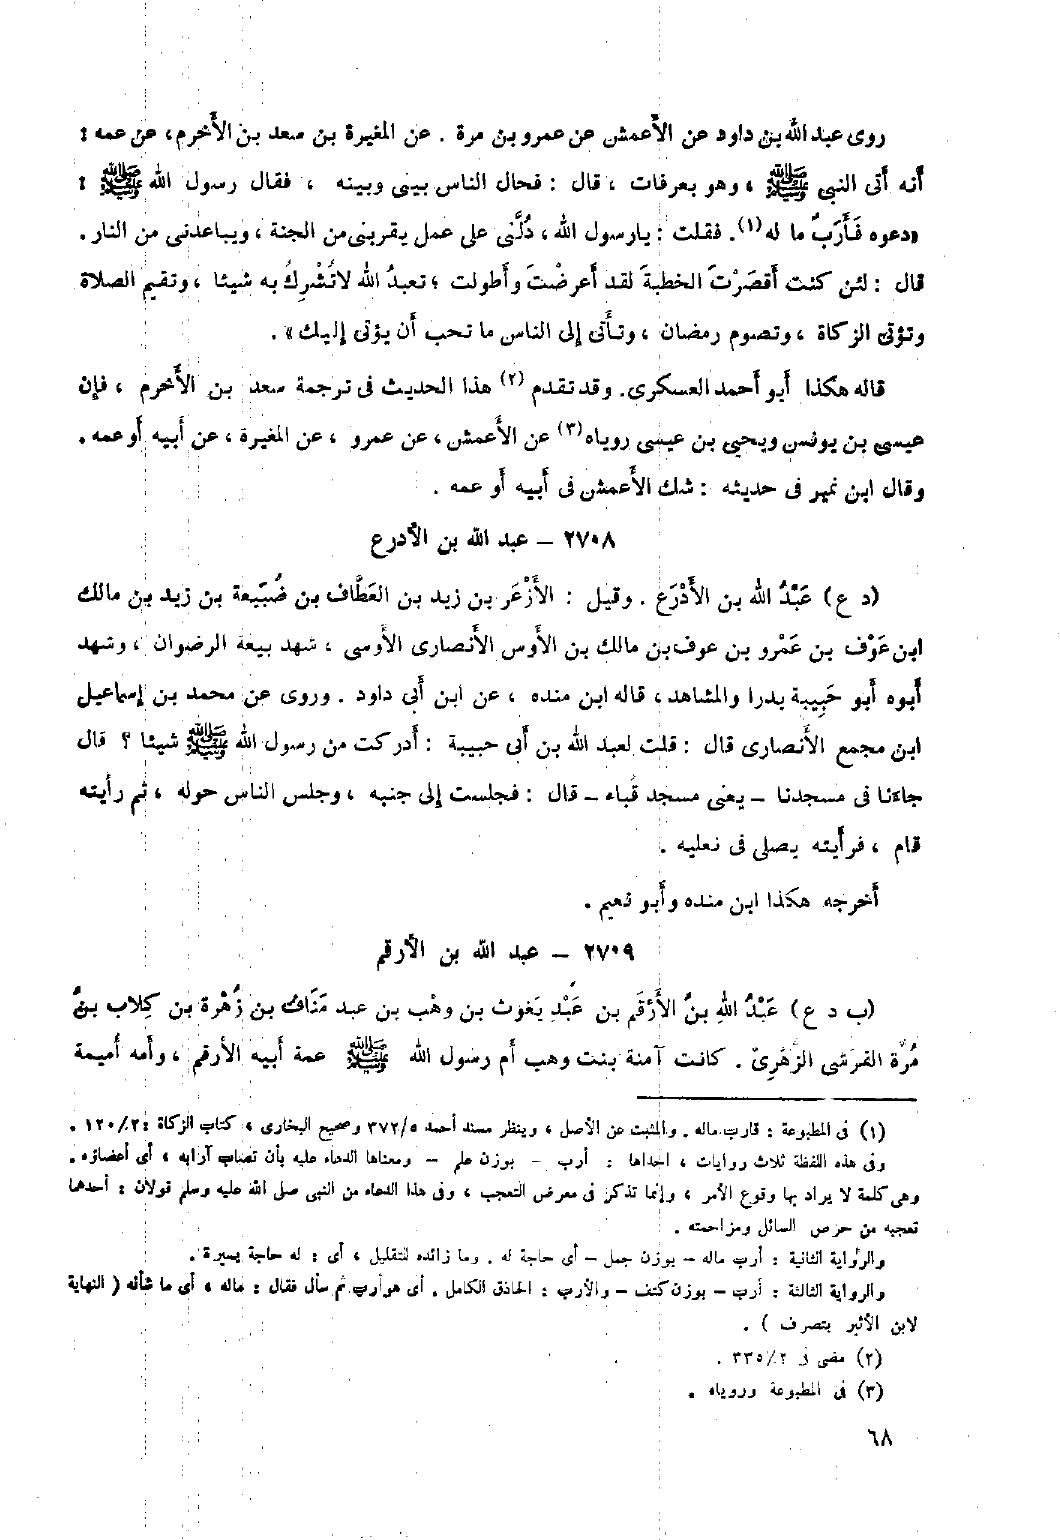 روى عبد الله بن داود عن الأعمش عن عمرو بن مرة . عن المغيرة بن سعد بن الأخرم، عن عمه :
أنه أتى النبي ﷺ ، وهو بعرفات ، قال : فحال الناس بيني وبينه ، فقال رسول الله ﷺ :
«دعوه فَأَرَبٌ ما له (١). فقلت : يارسول الله ، دُلَّنى على عمل يقربنى من الجنة ، ويباعدنى من النار .
قال : لئن كنت أقصَرْتَ الخطبةَ لقد أعرضْتَ وأطولت ؛ تعبدُ الله لاتُشْرِكُ به شيئا ، وتقيم الصلاة
وتؤتى الزكاة ، وتصوم رمضان ، وتأتى إلى الناس ما تحب أن يؤتى إليك» .
قاله هكذا أبو أحمد العسكرى. وقد تقدم (٢) هذا الحديث فى ترجمة سعد بن الأخرم ، فإن
عيسى بن يونس ويحيى بن عيسى روياه(٣) عن الأعمش ، عن عمرو ، عن المغيرة ، عن أبيه أو عمه .
وقال ابن نمير فى حديثه : شك الأعمش فى أبيه أو عمه .
٢٧٠٨ – عبد الله بن الأدرع
(د ع) عَبْدُ الله بن الأَدْرَع . وقيل : الأَزْعَر بن زيد بن العَطَّاف بن ضُبَيعة بن زيد بن مالك
ابن عَوْف بن عَمْرو بن عوف بن مالك بن الأوس الأنصارى الأوسى ، شهد بيعة الرضوان ، وشهد
أبوه أبو حَبِيبة بدرا والمشاهد ، قاله ابن منده ، عن ابن أبى داود . وروى عن محمد بن إسماعيل
ابن مجمع الأنصارى قال : قلت لعبد الله بن أبى حبيبة : أدركت من رسول الله ﷺ شيئا ؟ قال
جاءنا فى مسجدنا – يعنى مسجد قُباء – قال : فجلست إلى جنبه ، وجلس الناس حوله ، ثم رأيته
قام ، فرأيته يصلى فى نعليه .
أخرجه هكذا ابن منده وأبو نعيم .
٢٧٠٩ – عبد الله بن الأرقم
(ب د ع) عَبْدُ اللهِ بنُ الأَرْقَم بن عَبْدِ يَغوث بن وهْب بن عبد مَنَاف بن زُهْرة بن كِلاب بنُ
مُرّة القرشى الزُّهْرِىّ . كانت آمنة بنت وهب أم رسول الله ﷺ عمة أبيه الأرقم ، وأمه أميمة
(١) فى المطبوعة : قارب ماله . والمثبت عن الأصل ، وينظر مسند أحمد ٣٧٢/٥ وصحيح البخارى ، كتاب الزكاة : ١٢٠/٢ .
وفى هذه اللفظة ثلاث روايات ، احداها : أرب – بوزن علم – ومعناها الدعاء عليه بأن تصاب آرابه ، أى أعضاؤه .
وهى كلمة لا يراد بها وقوع الأمر ، وإنما تذكر فى معرض التعجب ، وفى هذا الدعاء من النبى صلى الله عليه وسلم قولان : أحدهما
تعجبه من حرص السائل ومزاحمته .
والرواية الثانية : أرب ماله – بوزن جمل – أى حاجة له . وما زائده للتقليل ، أى : له حاجة يسيرة .
والرواية الثالثة : أرب – بوزن كتف – والأرب : الحاذق الكامل . أى هو أرب ثم سأل فقال : ماله ، أى ما شأنه ( النهاية
لابن الأثير بتصرف ) .
(٢) مضى فى ٣٣٥/٢ .
(٣) فى المطبوعة ورويا‌ه .
٦٨